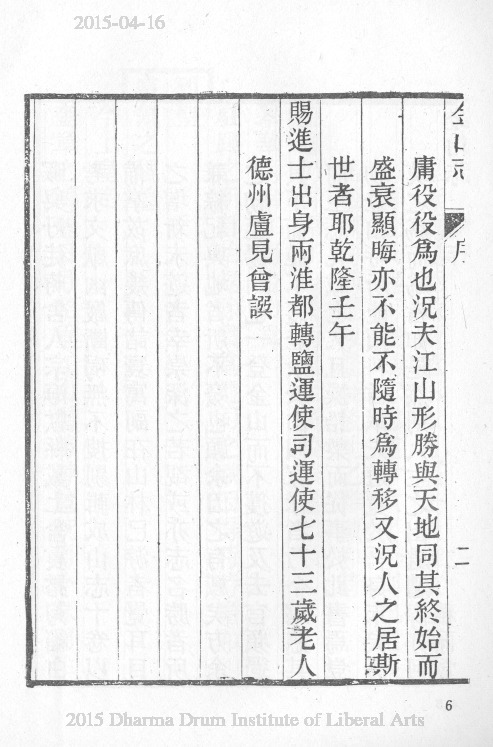 2015-04-16
金山志 序 二
庸役役爲也況夫江山形勝與天地同其終始而
盛衰顯晦亦不能不隨時爲轉移又況人之居斯
世者耶乾隆壬午
賜進士出身兩淮都轉鹽運使司運使七十三歲老人
德州盧見曾譔
6
2015 Dharma Drum Institute of Liberal Arts